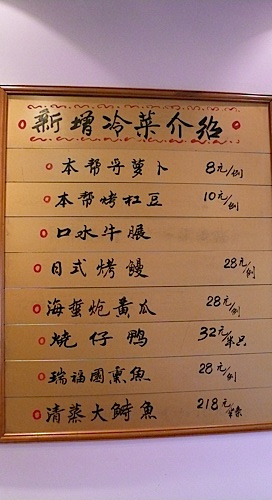 新增冷菜介绍
本帮丹萝卜 8元/例
本帮烤扛豆 10元/例
口水牛腱
日式烤鳗 28元/例
海蜇炝黄瓜 28元/例
烧仔鸭 32元/半只
瑞福园熏魚 28元/例
清蒸大鲥魚 218元/半条